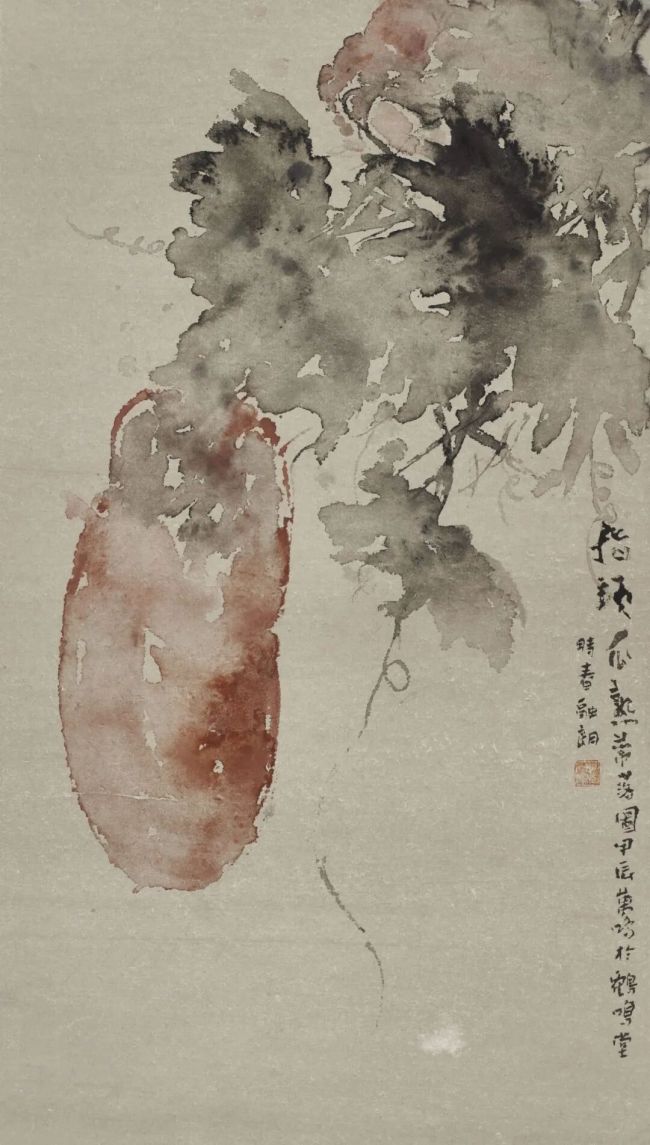 指頭瓜熟蒂落圖甲辰於鶴鳴堂
時春融朗